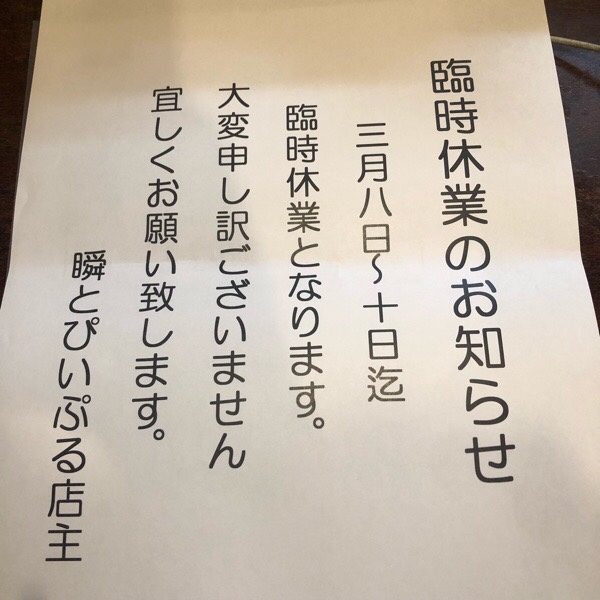 臨時休業のお知らせ
三月八日〜十日迄
臨時休業となります。
大変申し訳ございません
宜しくお願い致します。
瞬とぴいぷる店主